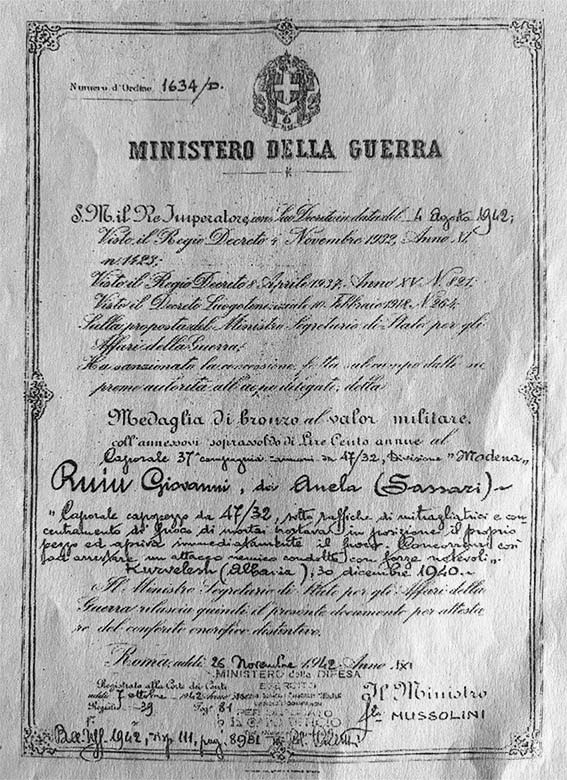 Numero d'Ordine 1634/D.
MINISTERO DELLA GUERRA
S. M. il Re Imperatore, con Suo Decreto in data del 4 Agosto 1942;
Visto il Regio Decreto 4 Novembre 1932, Anno XI,
n. 1423;
Visto il Regio Decreto 8 Aprile 1937, Anno XV N. 821;
Visto il Decreto Luogotenenziale 10 Febbraio 1918, N. 264
Sulla proposta del Ministro Segretario di Stato per gli
Affari della Guerra;
Ha sanzionato la concessione, fatta sul campo dalle su
preme autorità all'uopo delegate, della
Medaglia di bronzo al valor militare,
coll'annessovi soprassoldo di Lire Cento annue al
Caporale 37ª compagnia cannoni da 47/32, Divisione "Modena"
Ruiu Giovanni, da Anela (Sassari)
"Caporale capopezzo da 47/32, sotto raffiche di mitragliatrici e con
centramento di fuoco di mortai, portava in posizione il proprio
pezzo ed apriva immediatamente il fuoco. Concorreva così
ad arrestare un attacco nemico condotto con forze notevoli".
Kurvelesh (Albania), 30 dicembre 1940
Il Ministro Segretario di Stato per gli Affari della
Guerra rilascia quindi il presente documento per attesta
re del conferito onorifico distintivo.
Roma, addì 26 Novembre 1942 Anno XXI
MINISTERO della DIFESA
ESERCITO
Registrato alla Corte dei Conti
addì 7 ottobre 1942
Registro 39 Fog° 81
Il Ministro
fto MUSSOLINI
Boll. Uff. 1942, disp. 111, pag. 8981